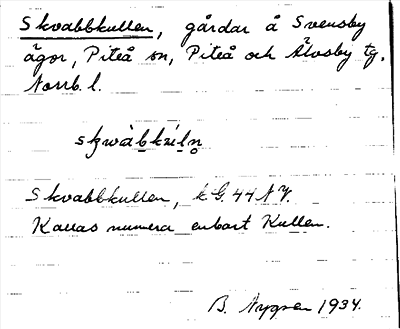 Skvabbkullen, gårdar å Svensby
ägor, Piteå sn, Piteå och Älvsby tg,
Norrb. l.
Skvabbkullen, k G. 44 NV.
Kallas numera enbart Kullen.
B. Nygren 1934.